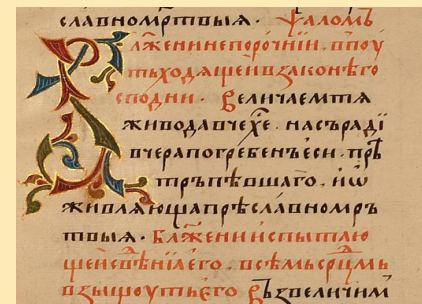 славномр҃твыѧ. ѱаломь
Блажени непорочнїи. впоу
тьходѧщеи в законѣ го
сподни. Величаем тѧ
живодавче х҃е. нас ради
вчера погребенъ еси. прѣ
тръпѣвшаго. и ѡ
живлѧюща прѣславно мр҃ъ
твыѧ. Блажени испытаю
щеи свѣ҃нїа его. всѣмь ср҃цмь
взыщоуть его Възвеличим